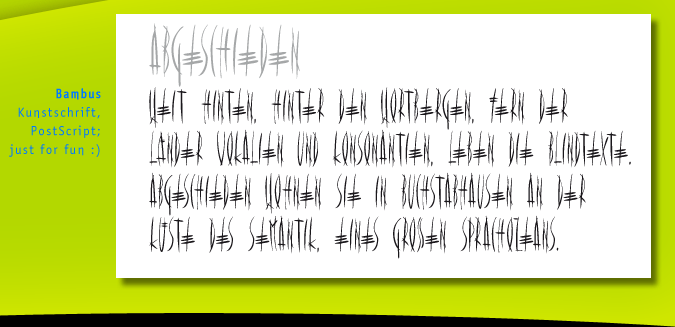 ABGESCHIEDEN
Bambus
Kunstschrift,
PostScript;
just for fun :)
WEIT HINTEN, HINTER DEN WORTBERGEN, FERN DER
LÄNDER VOKALIEN UND KONSONANTIEN, LEBEN DIE BLINDTEXTE.
ABGESCHIEDEN WOHNEN SIE IN BUCHSTABHAUSEN AN DER
KÜSTE DES SEMANTIK, EINES GROSEN SPRACHOZEANS.